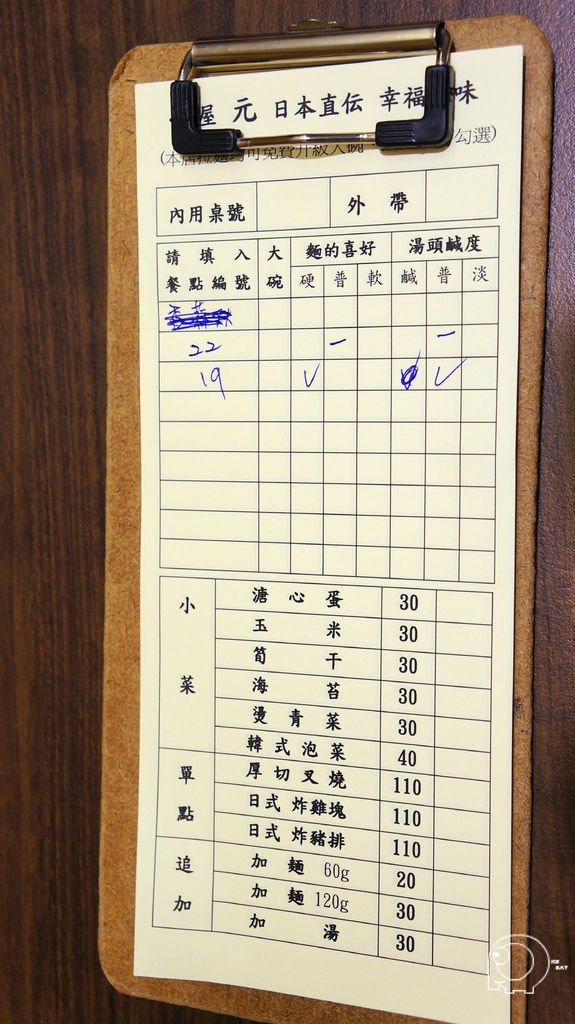 屋 元 日本直伝 幸福 味
(本店拉麵均可免費升級大碗 勾選)
內用桌號 外 帶
請 填 入 大 麵的喜好 湯頭鹹度
餐點編號 碗 硬 普 軟 鹹 普 淡
22 一 一
19 ✓ ✓
小菜 溏 心 蛋 30
玉 米 30
筍 干 30
海 苔 30
燙 青 菜 30
韓 式 泡 菜 40
單點 厚 切 叉 燒 110
日式 炸雞塊 110
日式 炸豬排 110
追加 加 麵 60g 20
加 麵 120g 30
加 湯 30
ICE
EAT